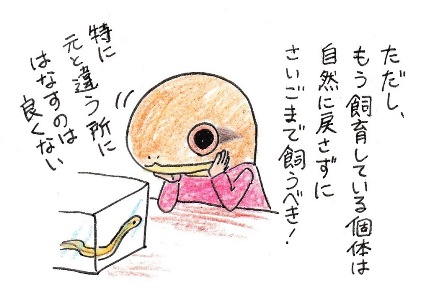 ただし、
もう飼育している個体は
自然に戻さずに
さいごまで飼うべき！
特に
元と違う所に
はなすのは
良くない